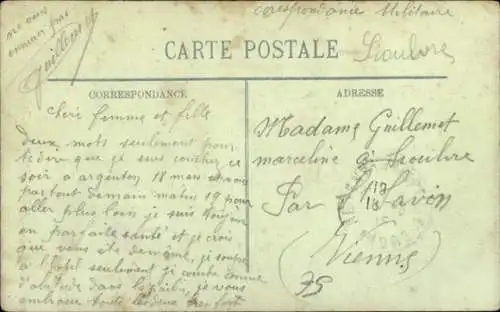 ne vous
ennuier pas
Guillemet
Corespondance Militaire
CARTE POSTALE
CORRESPONDANCE
ADRESSE
chère femme et fille
deux mots seulement pour
te dire que je suis coucher ce
soir à argenton 18 mars et
partout demain matin 19 pour
aller plus loin je suis toujour
en parfaite santé et je crois
que vous ête de même, je
à l'hôtel seulement je comme
dans la je vous
embrasse toute les deux fort
Madame Guillemet
marceline à
Par St Savin
(Vienne)
75